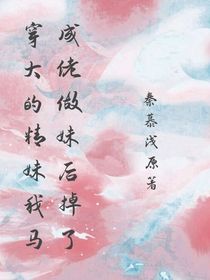 穿成
大佬
的做
精妹
妹后
我掉
马了
秦慕浅原著